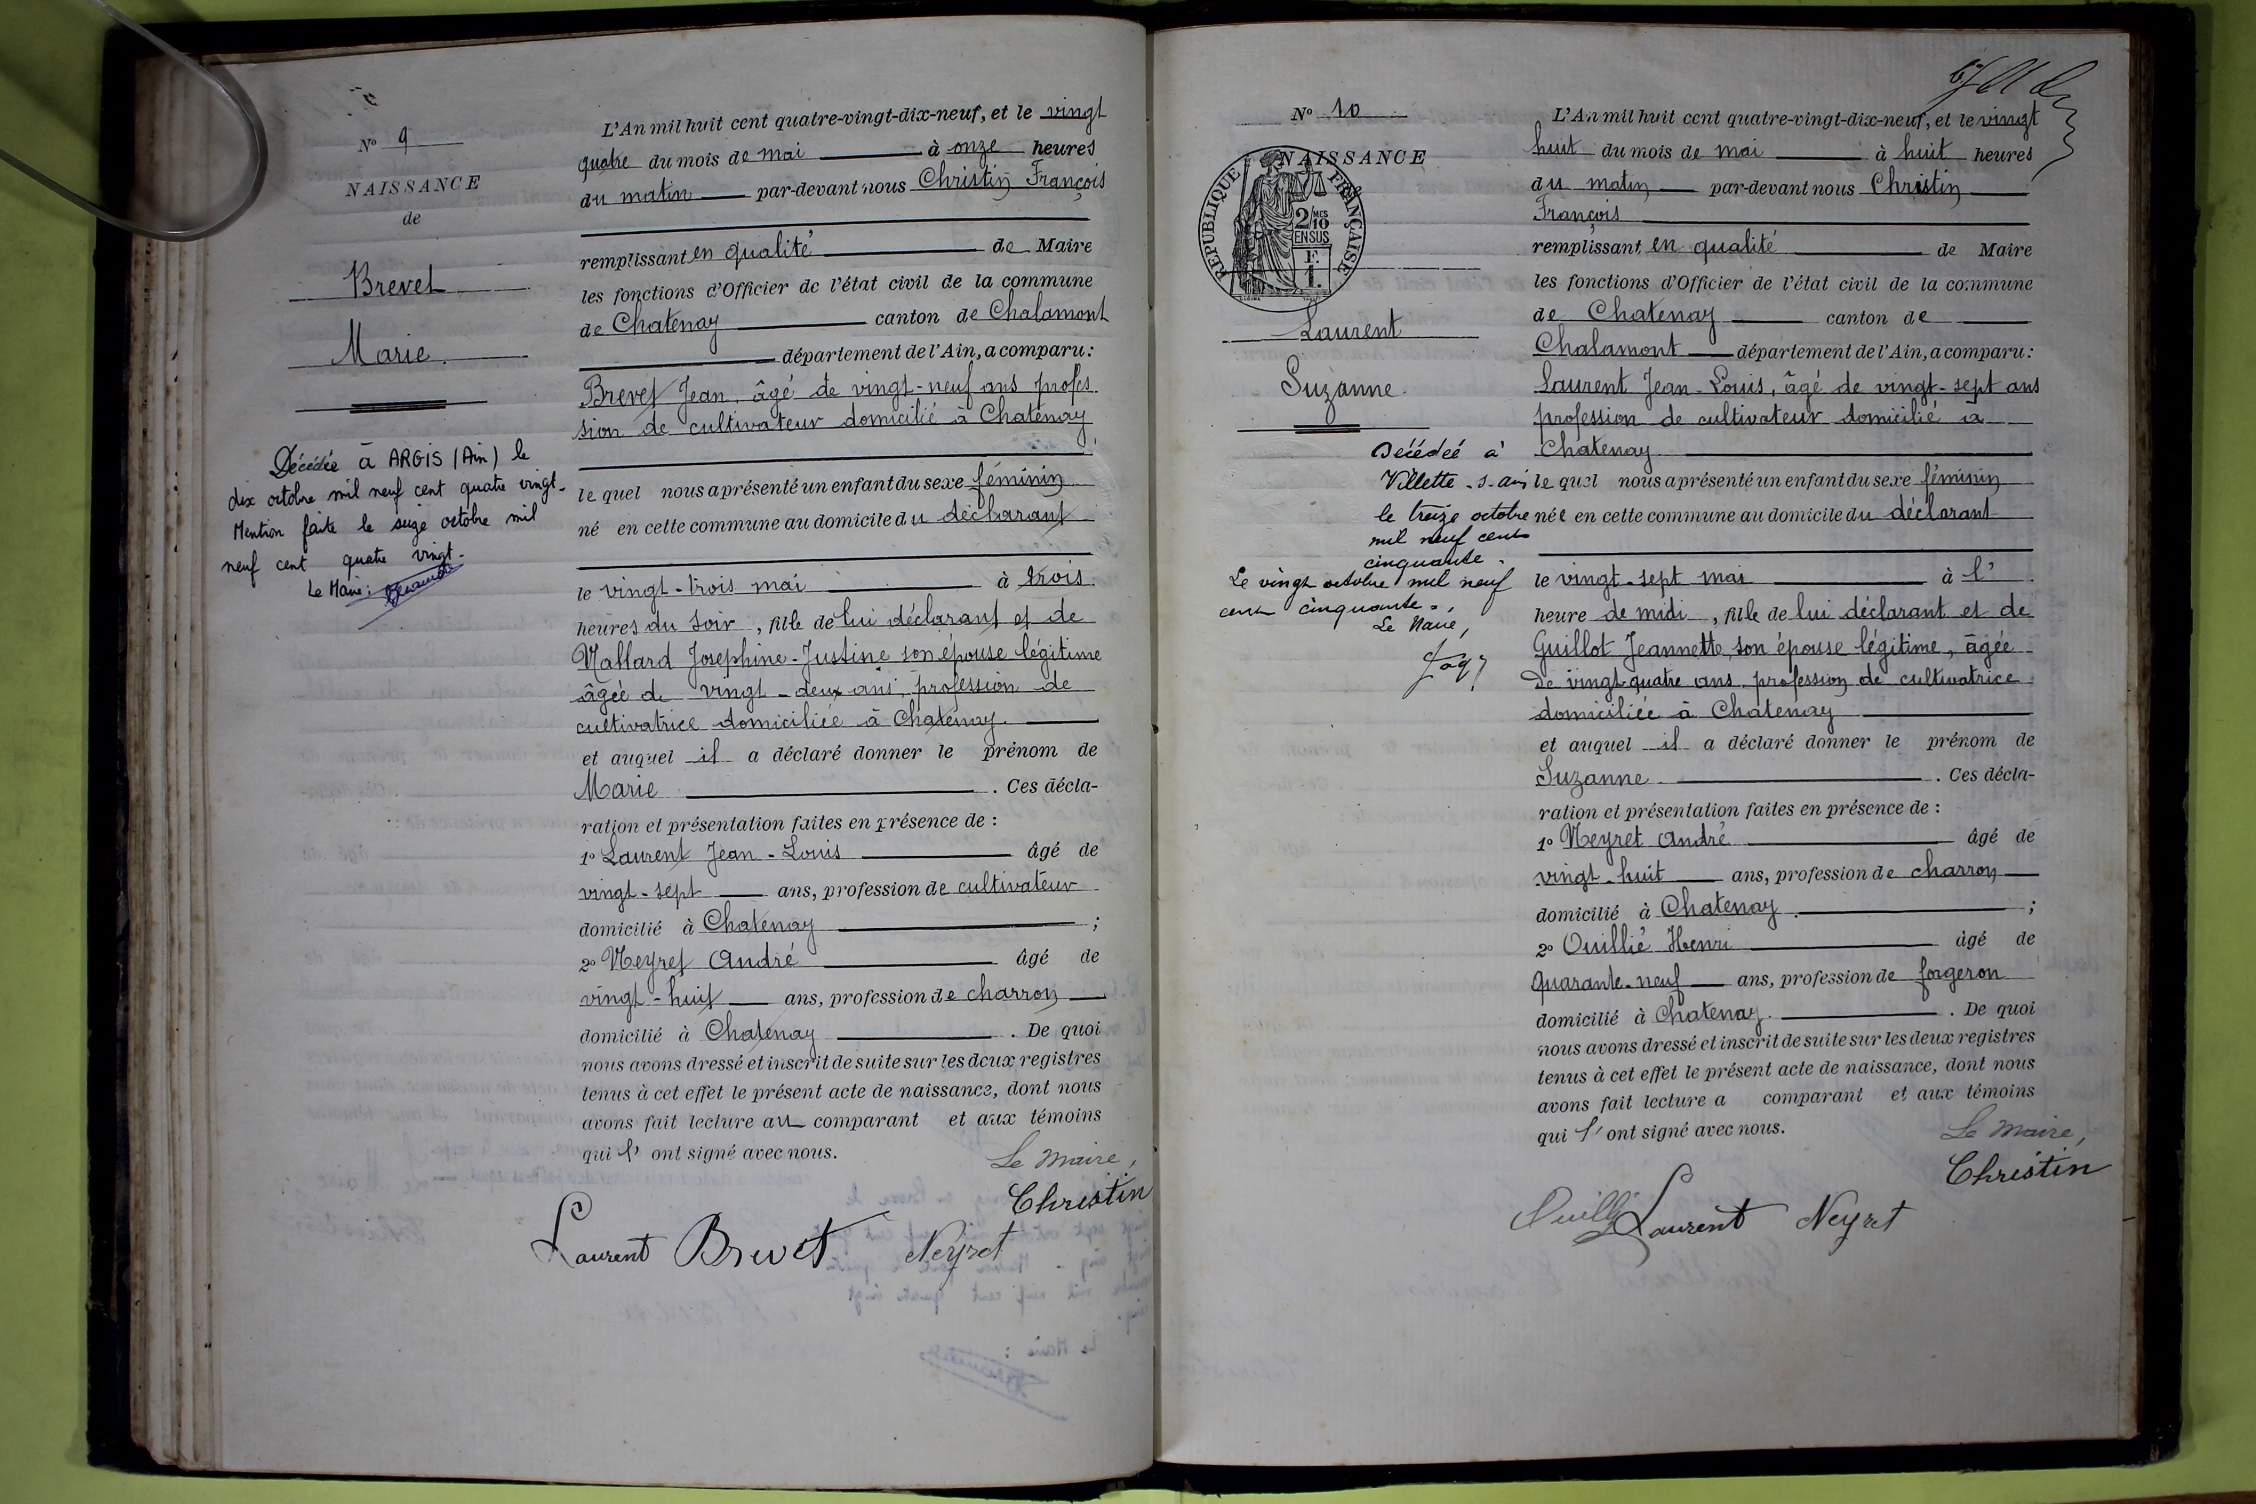 N° 9
NAISSANCE
de
Brevet
Marie.
Décédée à ARGIS (Ain) le
dix octobre mil neuf cent quatre vingt-
Mention faite le seize octobre mil
neuf cent quatre vingt-
Le Maire:
L'An mil huit cent quatre-vingt-dix-neuf, et le vingt
quatre du mois de mai à onze heures
du matin par-devant nous Christin François
remplissant en qualité de Maire
les fonctions d'Officier de l'état civil de la commune
de Chatenay canton de Chalamont
département de l'Ain, a comparu:
Brevet Jean, âgé de vingt-neuf ans profes-
sion de cultivateur domicilié à Chatenay
le quel nous a présenté un enfant du sexe féminin
né en cette commune au domicile du déclarant
le vingt-trois mai à trois
heures du soir, fille de lui déclarant et de
Mallard Josephine-Justine son épouse légitime
âgée de vingt-deux ans, profession de
cultivatrice domiciliée à Chatenay.
et auquel il a déclaré donner le prénom de
Marie . Ces décla-
ration et présentation faites en présence de :
1° Laurent Jean-Louis âgé de
vingt-sept ans, profession de cultivateur
domicilié à Chatenay ;
2° Neyret André âgé de
vingt-huit ans, profession de charron
domicilié à Chatenay . De quoi
nous avons dressé et inscrit de suite sur les deux registres
tenus à cet effet le présent acte de naissance, dont nous
avons fait lecture au comparant et aux témoins
qui l' ont signé avec nous.
Le Maire,
Christin
Laurent Brevet Neyret
N° 10
NAISSANCE
RÉPUBLIQUE FRANÇAISE
2/10 MES
EN SUS
F.
1.
Laurent
Suzanne.
Décédée à
Villette-s-ain
le treize octobre
mil neuf cent
cinquante.
Le vingt octobre mil neuf
cent cinquante.,
Le Maire,
L'An mil huit cent quatre-vingt-dix-neuf, et le vingt
huit du mois de mai à huit heures
du matin par-devant nous Christin
François
remplissant en qualité de Maire
les fonctions d'Officier de l'état civil de la commune
de Chatenay canton de
Chalamont département de l'Ain, a comparu:
Laurent Jean-Louis, âgé de vingt-sept ans
profession de cultivateur domicilié à
Chatenay
le quel nous a présenté un enfant du sexe féminin
née en cette commune au domicile du déclarant
le vingt-sept mai à l'
heure de midi, fille de lui déclarant et de
Guillot Jeannette, son épouse légitime, âgée
de vingt quatre ans, profession de cultivatrice
domiciliée à Chatenay
et auquel il a déclaré donner le prénom de
Suzanne . Ces décla-
ration et présentation faites en présence de :
1° Neyret André âgé de
vingt-huit ans, profession de charron
domicilié à Chatenay. ;
2° Ouillié Henri âgé de
quarante-neuf ans, profession de forgeron
domicilié à Chatenay. . De quoi
nous avons dressé et inscrit de suite sur les deux registres
tenus à cet effet le présent acte de naissance, dont nous
avons fait lecture a comparant et aux témoins
qui l' ont signé avec nous.
Le Maire,
Christin
Laurent Neyret